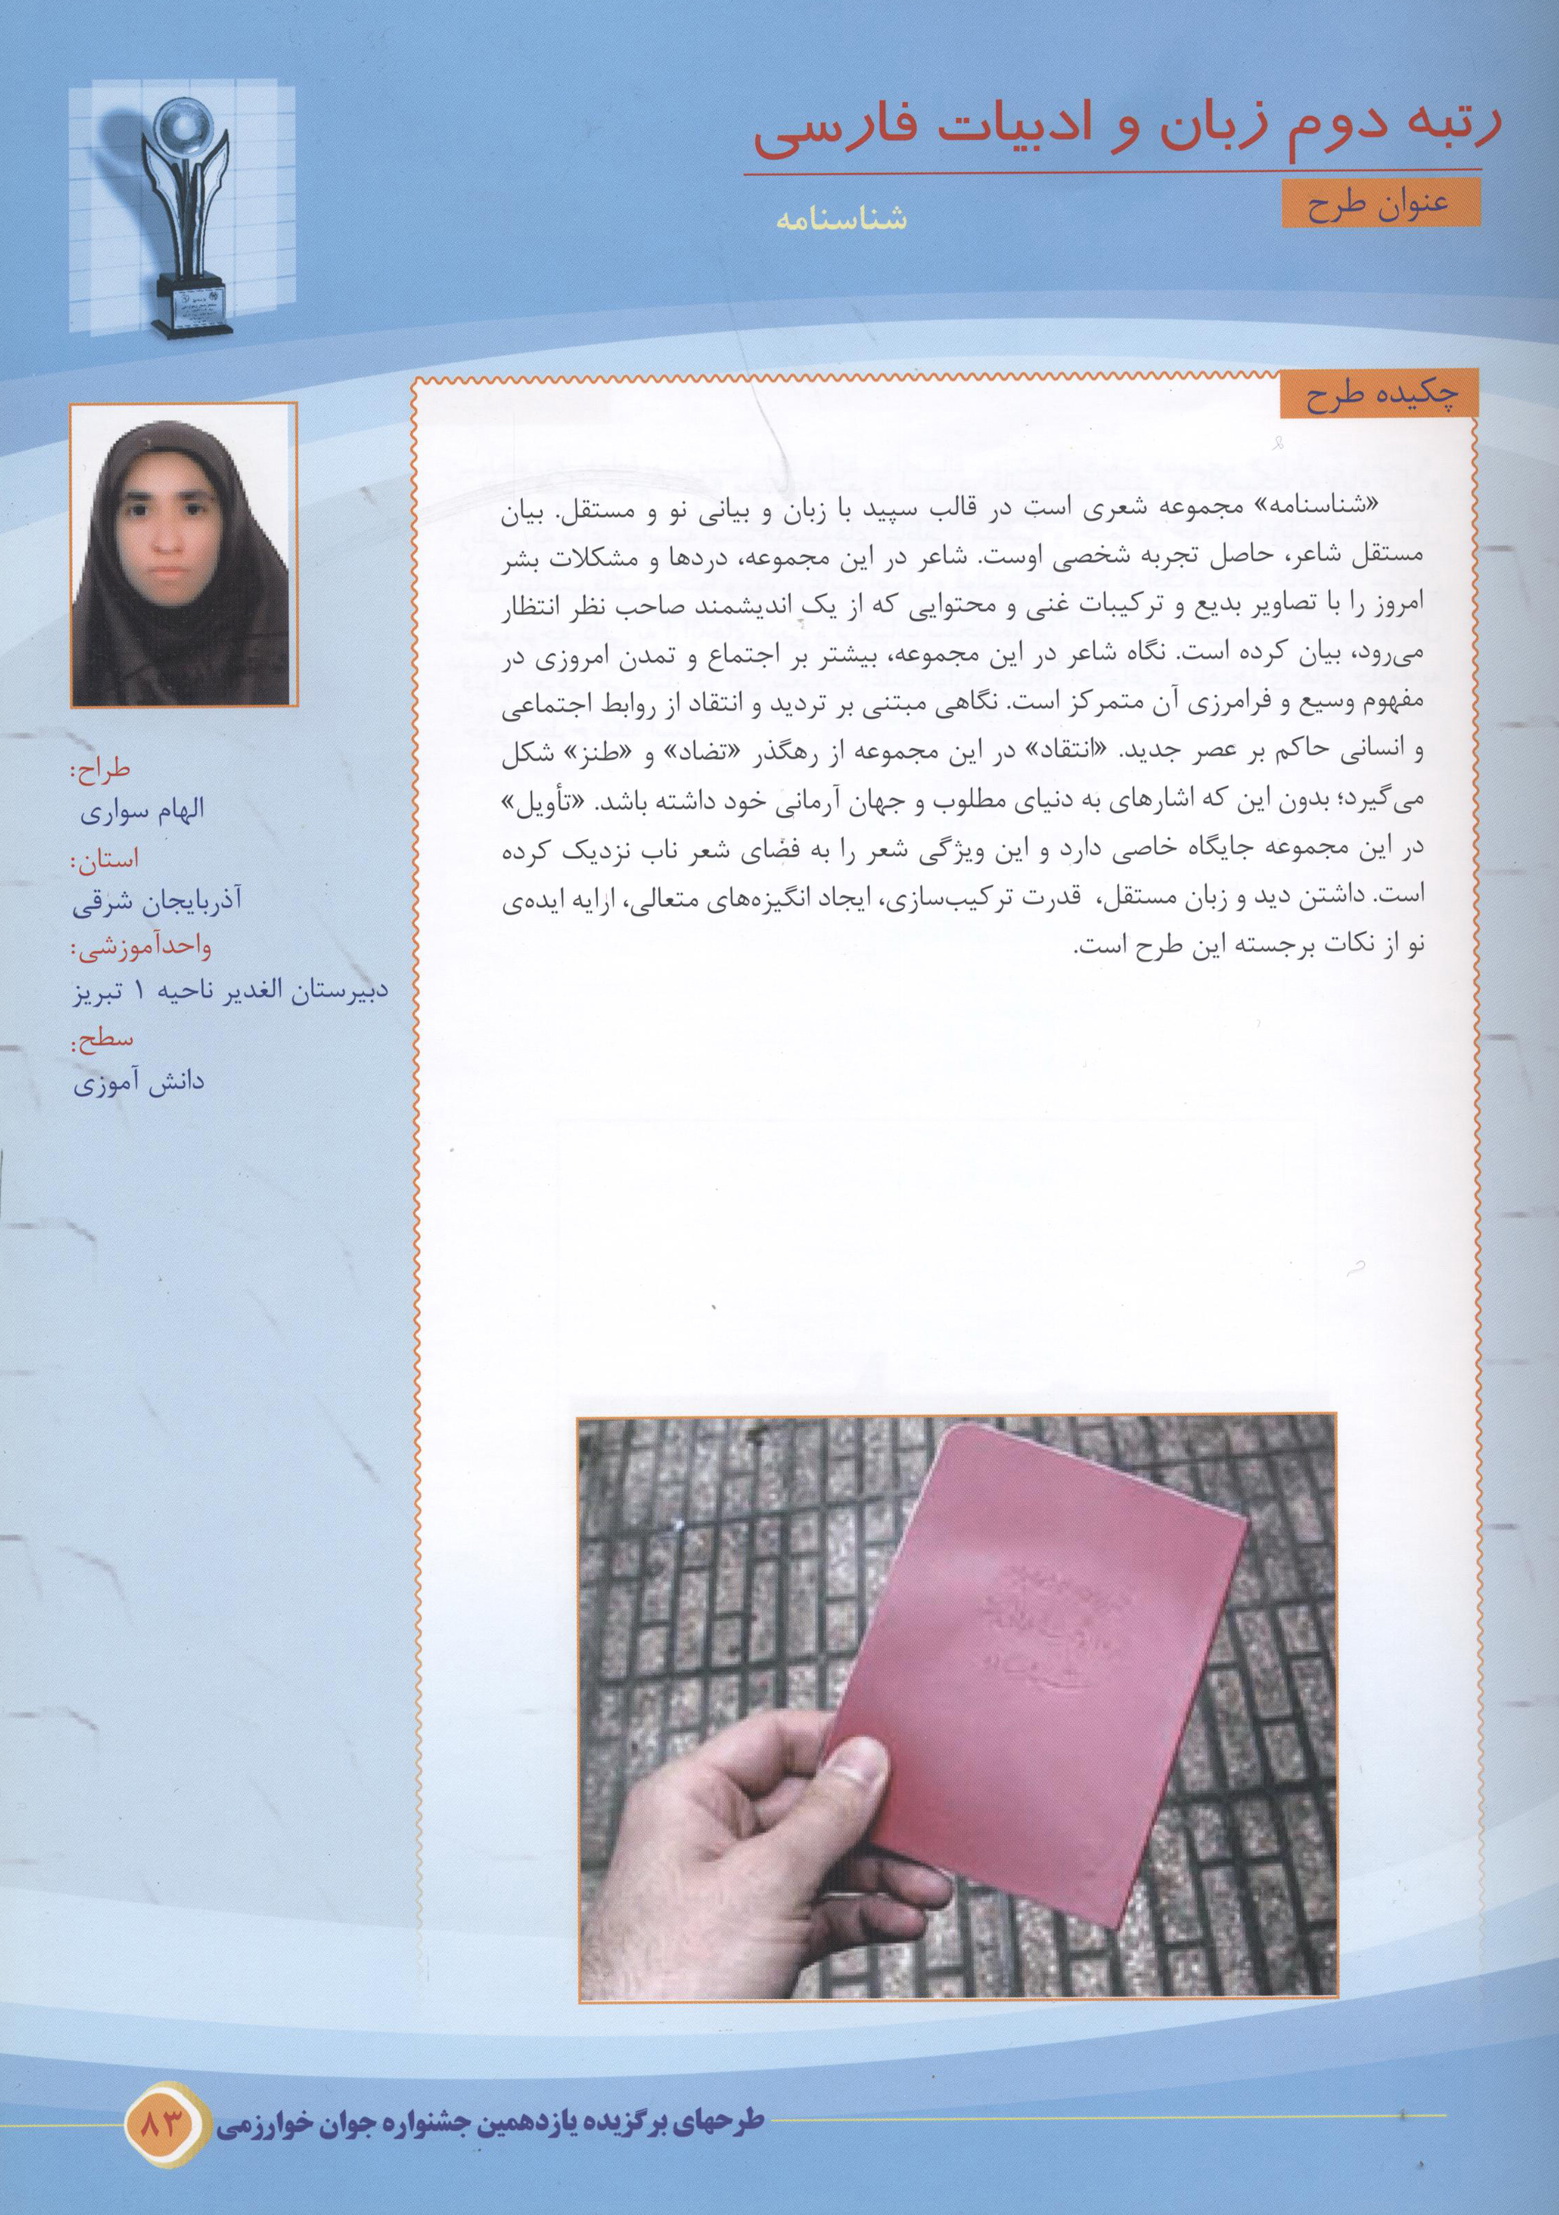 رتبه دوم زبان و ادبیات فارسی
عنوان طرح
شناسنامه
چکیده طرح
«شناسنامه» مجموعه شعری است در قالب سپید با زبان و بیانی نو و مستقل. بیان
مستقل شاعر، حاصل تجربه شخصی اوست. شاعر در این مجموعه، دردها و مشکلات بشر
امروز را با تصاویر بدیع و ترکیبات غنی و محتوایی که از یک اندیشمند صاحب نظر انتظار
می‌رود، بیان کرده است. نگاه شاعر در این مجموعه، بیشتر بر اجتماع و تمدن امروزی در
مفهوم وسیع و فرامرزی آن متمرکز است. نگاهی مبتنی بر تردید و انتقاد از روابط اجتماعی
و انسانی حاکم بر عصر جدید. «انتقاد» در این مجموعه از رهگذر «تضاد» و «طنز» شکل
می‌گیرد؛ بدون این که اشارهای به دنیای مطلوب و جهان آرمانی خود داشته باشد. «تأویل»
در این مجموعه جایگاه خاصی دارد و این ویژگی شعر را به فضای شعر ناب نزدیک کرده
است. داشتن دید و زبان مستقل، قدرت ترکیب‌سازی، ایجاد انگیزه‌های متعالی، ارایه ایده‌ی
نو از نکات برجسته این طرح است.
طراح:
الهام سواری
استان:
آذربایجان شرقی
واحدآموزشی:
دبیرستان الغدیر ناحیه ۱ تبریز
سطح:
دانش آموزی
طرحهای برگزیده یازدهمین جشنواره جوان خوارزمی
۸۳